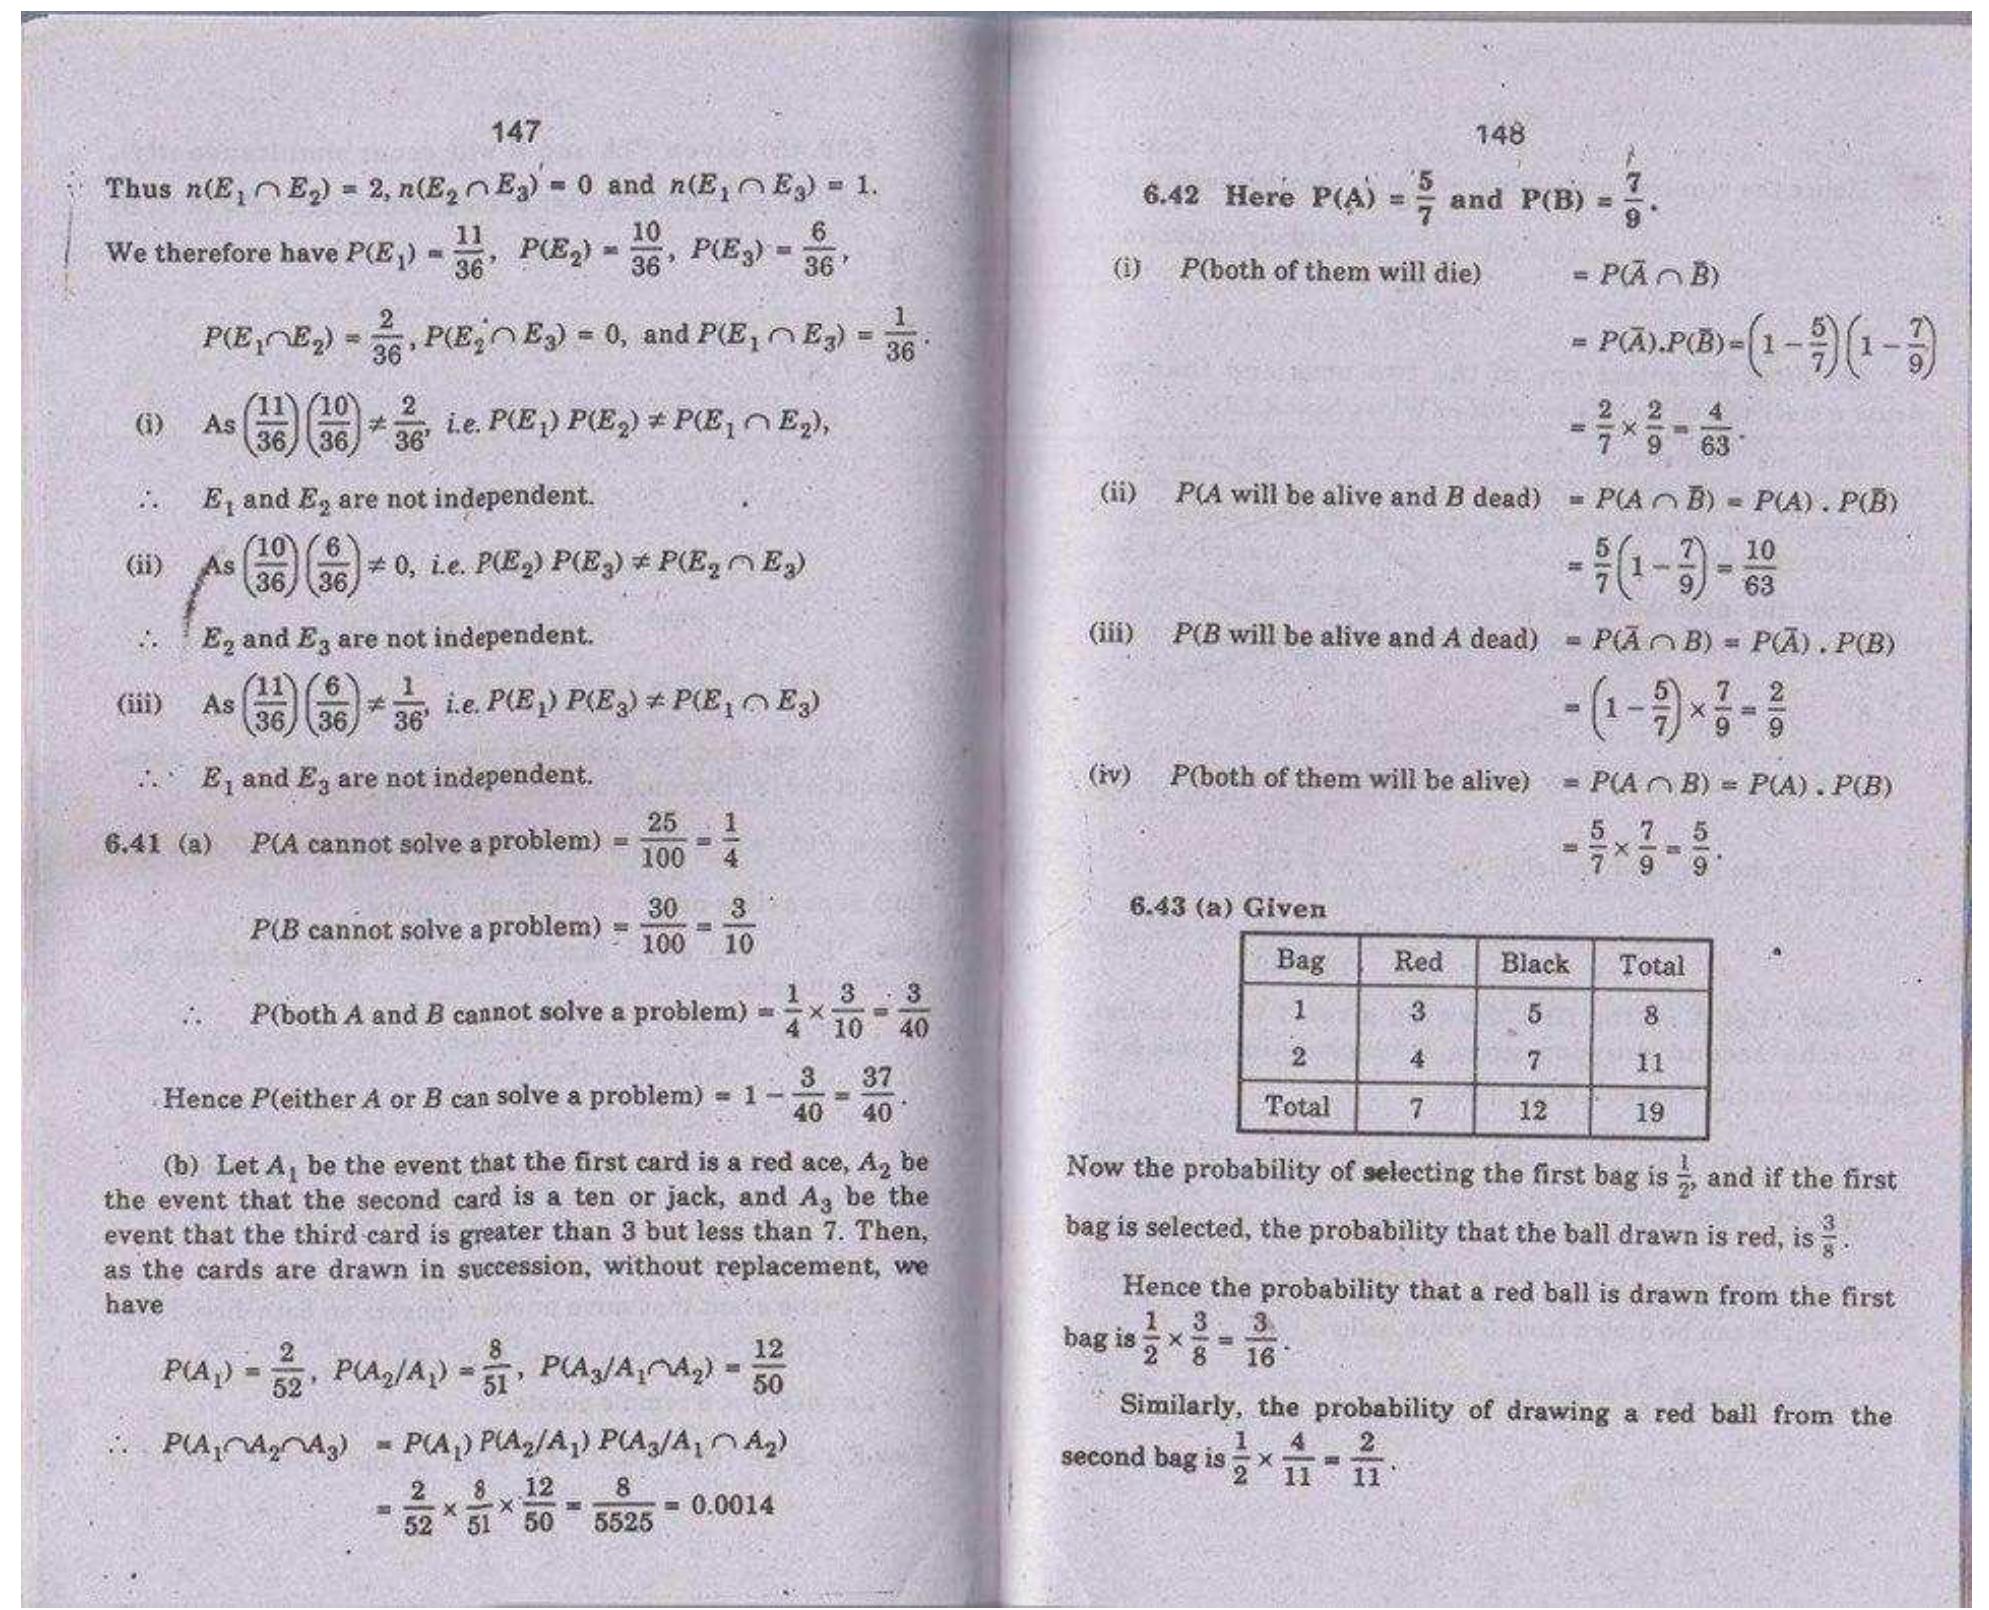 147
Thus n(E₁ ∩ E₂) = 2, n(E₂ ∩ E₃) = 0 and n(E₁ ∩ E₃) = 1.
We therefore have P(E₁) = 11/36, P(E₂) = 10/36, P(E₃) = 6/36,
P(E₁∩E₂) = 2/36, P(E₂ ∩ E₃) = 0, and P(E₁ ∩ E₃) = 1/36.
(i) As (11/36)(10/36) ≠ 2/36, i.e. P(E₁) P(E₂) ≠ P(E₁ ∩ E₂),
∴ E₁ and E₂ are not independent.
(ii) As (10/36)(6/36) ≠ 0, i.e. P(E₂) P(E₃) ≠ P(E₂ ∩ E₃)
∴ E₂ and E₃ are not independent.
(iii) As (11/36)(6/36) ≠ 1/36, i.e. P(E₁) P(E₃) ≠ P(E₁ ∩ E₃)
∴ E₁ and E₃ are not independent.
6.41 (a) P(A cannot solve a problem) = 25/100 = 1/4
P(B cannot solve a problem) = 30/100 = 3/10
∴ P(both A and B cannot solve a problem) = 1/4 × 3/10 = 3/40
Hence P(either A or B can solve a problem) = 1 − 3/40 = 37/40.
(b) Let A₁ be the event that the first card is a red ace, A₂ be
the event that the second card is a ten or jack, and A₃ be the
event that the third card is greater than 3 but less than 7. Then,
as the cards are drawn in succession, without replacement, we
have
P(A₁) = 2/52, P(A₂/A₁) = 8/51, P(A₃/A₁∩A₂) = 12/50
∴ P(A₁∩A₂∩A₃) = P(A₁) P(A₂/A₁) P(A₃/A₁ ∩ A₂)
= 2/52 × 8/51 × 12/50 = 8/5525 = 0.0014
148
6.42 Here P(A) = 5/7 and P(B) = 7/9.
(i) P(both of them will die) = P(Ā ∩ B̄)
= P(Ā).P(B̄)=(1 − 5/7)(1 − 7/9)
= 2/7 × 2/9 = 4/63.
(ii) P(A will be alive and B dead) = P(A ∩ B̄) = P(A) . P(B̄)
= 5/7(1 − 7/9) = 10/63
(iii) P(B will be alive and A dead) = P(Ā ∩ B) = P(Ā) . P(B)
= (1 − 5/7) × 7/9 = 2/9
(iv) P(both of them will be alive) = P(A ∩ B) = P(A) . P(B)
= 5/7 × 7/9 = 5/9.
6.43 (a) Given
Bag Red Black Total
1 3 5 8
2 4 7 11
Total 7 12 19
Now the probability of selecting the first bag is 1/2, and if the first
bag is selected, the probability that the ball drawn is red, is 3/8.
Hence the probability that a red ball is drawn from the first
bag is 1/2 × 3/8 = 3/16.
Similarly, the probability of drawing a red ball from the
second bag is 1/2 × 4/11 = 2/11.